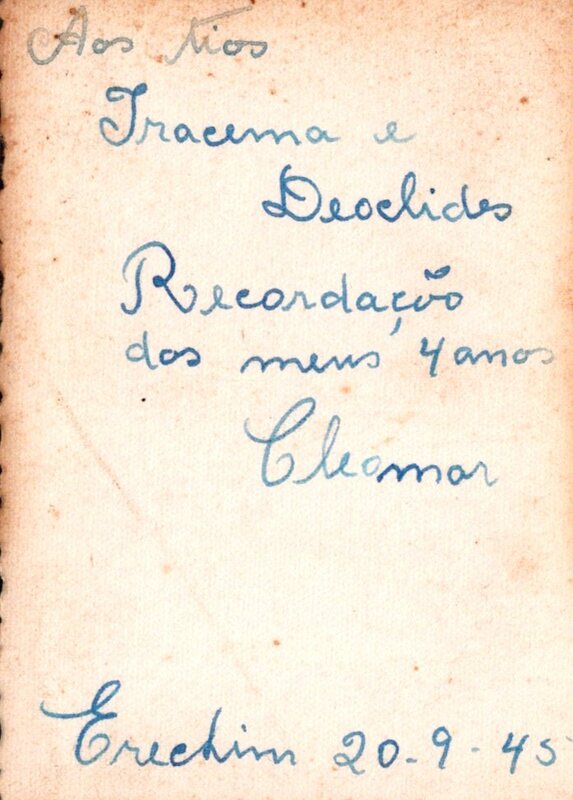 Aos tios
Iracema e
Deoclides
Recordação
dos meus 4 anos
Cleomar
Erechim 20-9-45